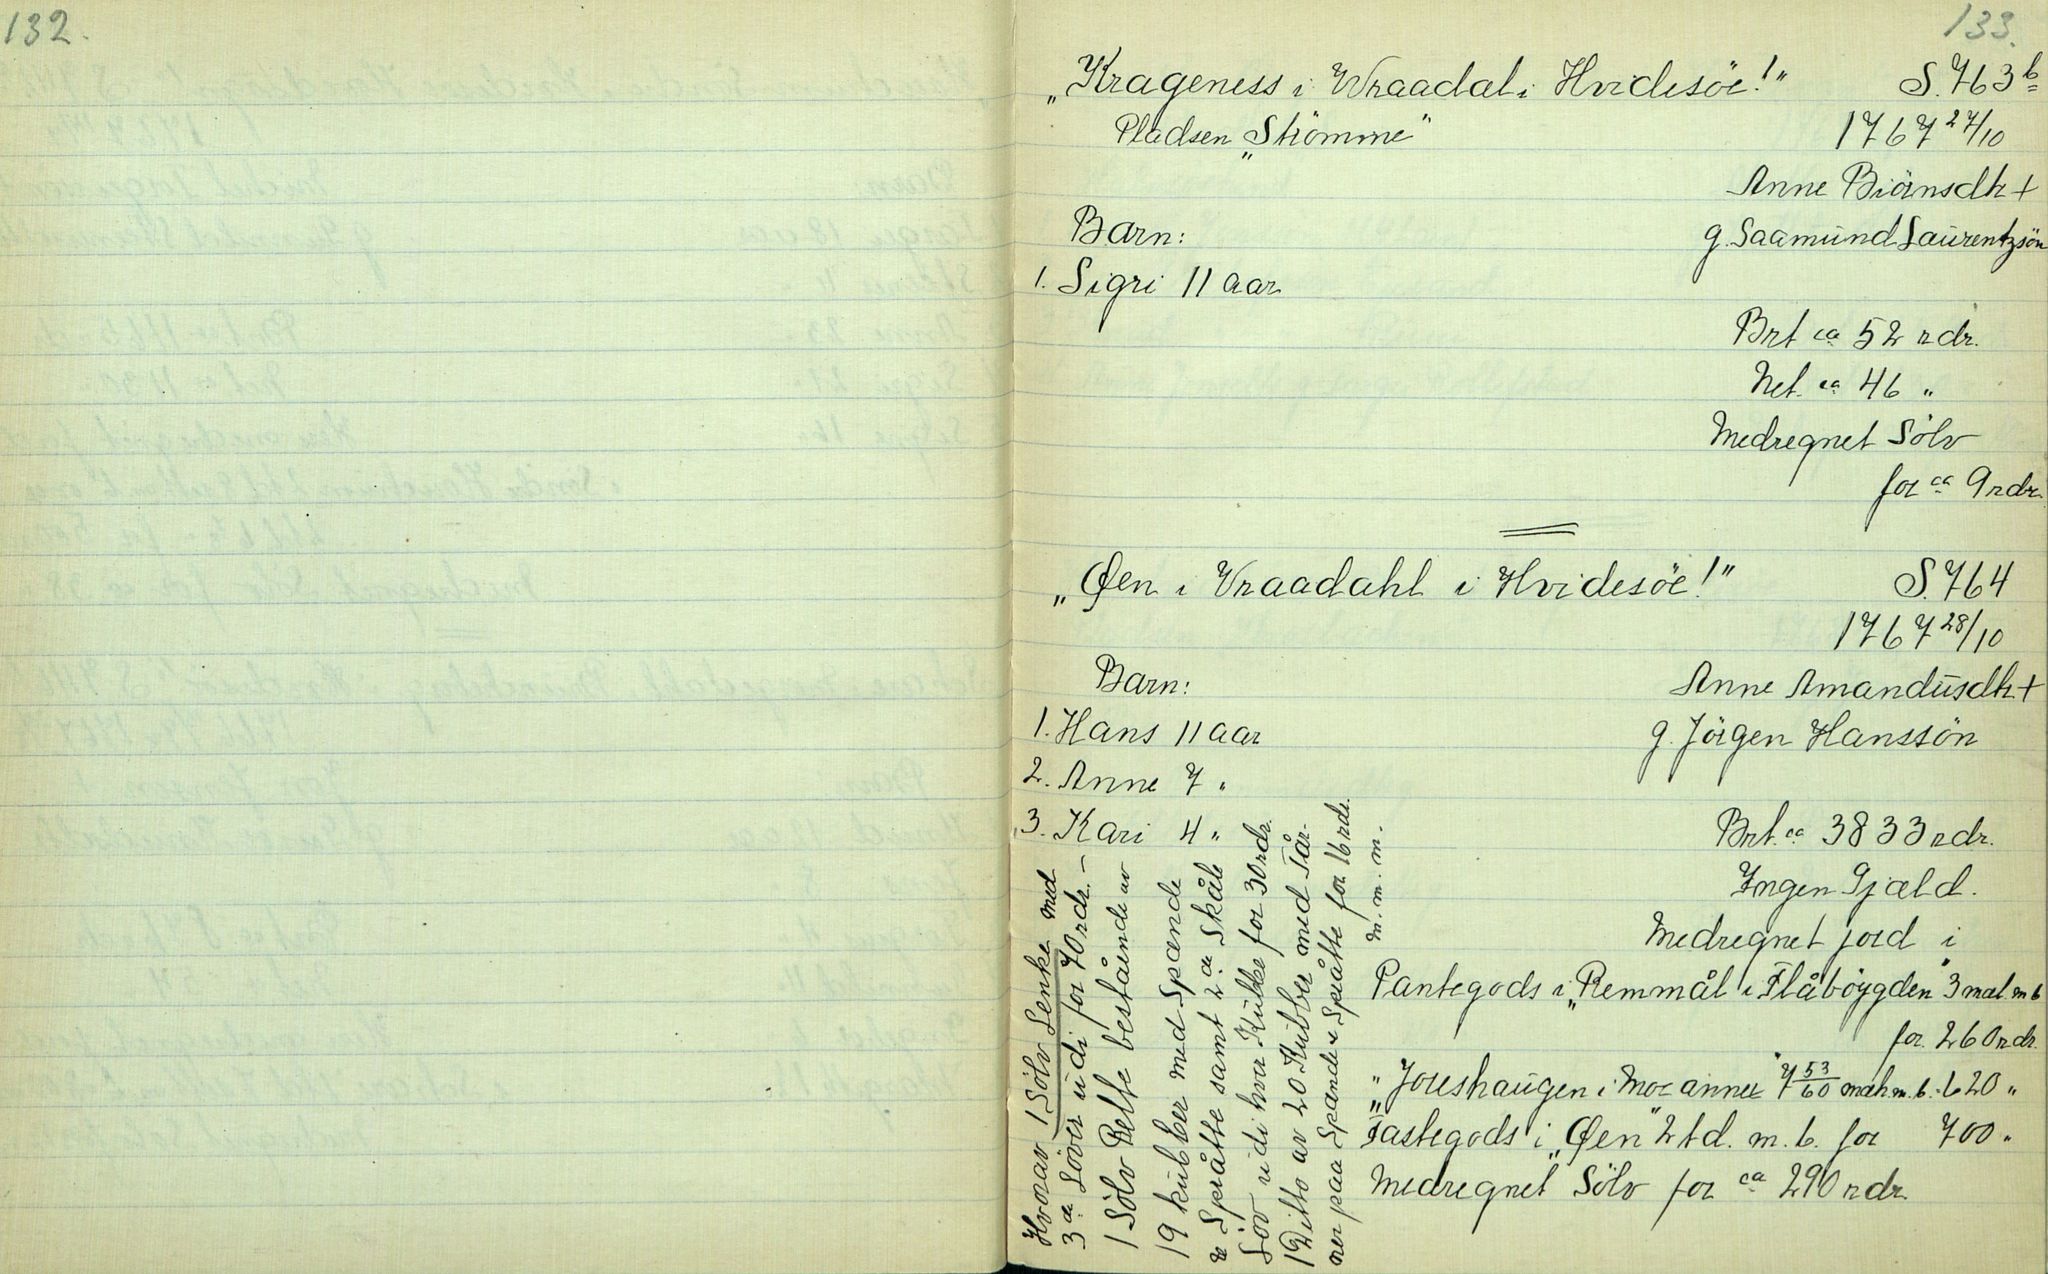 132.
133.
„Krageness i Wraadal i Hvidesöe!" S. 763 b
Pladsen „Strömme" 1767 27/10
Anne Biörnsdtr +
Barn: g. Saamund Laurentzsön
1. Sigri 11 aar
Brt ca 52 rdr.
Net. ca 46 "
Medregnet Sölv
for ca 9 rdr.
„Øen i Vraadahl i Hvidesöe!" S. 764
1767 28/10
Barn: Anne Amandusdtr +
1. Hans 11 aar g. Jörgen Hanssön
2. Anne 7 "
3. Kari 4 " Brt. ca 3833 rdr.
Ingen Gjæld.
Medregnet jord i
Pantegods i „Remmål i Flåbøygden" 3 mal. m b
for 260 rdr.
„Joreshaugen i Mor annex" 7 53/60 mælr m. b. - 620 "
Fastegods i „Øen" 2 td. m. b. for 700 "
Medregnet Sölv for ca 290 rdr.
Hvorav 1 Sölv Lenke med
3 Löver udi for 70 rdr. –
1 Sölv Belte bestående av
19 kubber med Spænde
& Språtte samt 2 Skåle
Löv udi hver Kubbe for 30 rdr.
1 Ditto av 20 Kubber med Tår-
ner paa Spænde & Språtte for 16 rdr.
m. m. m.